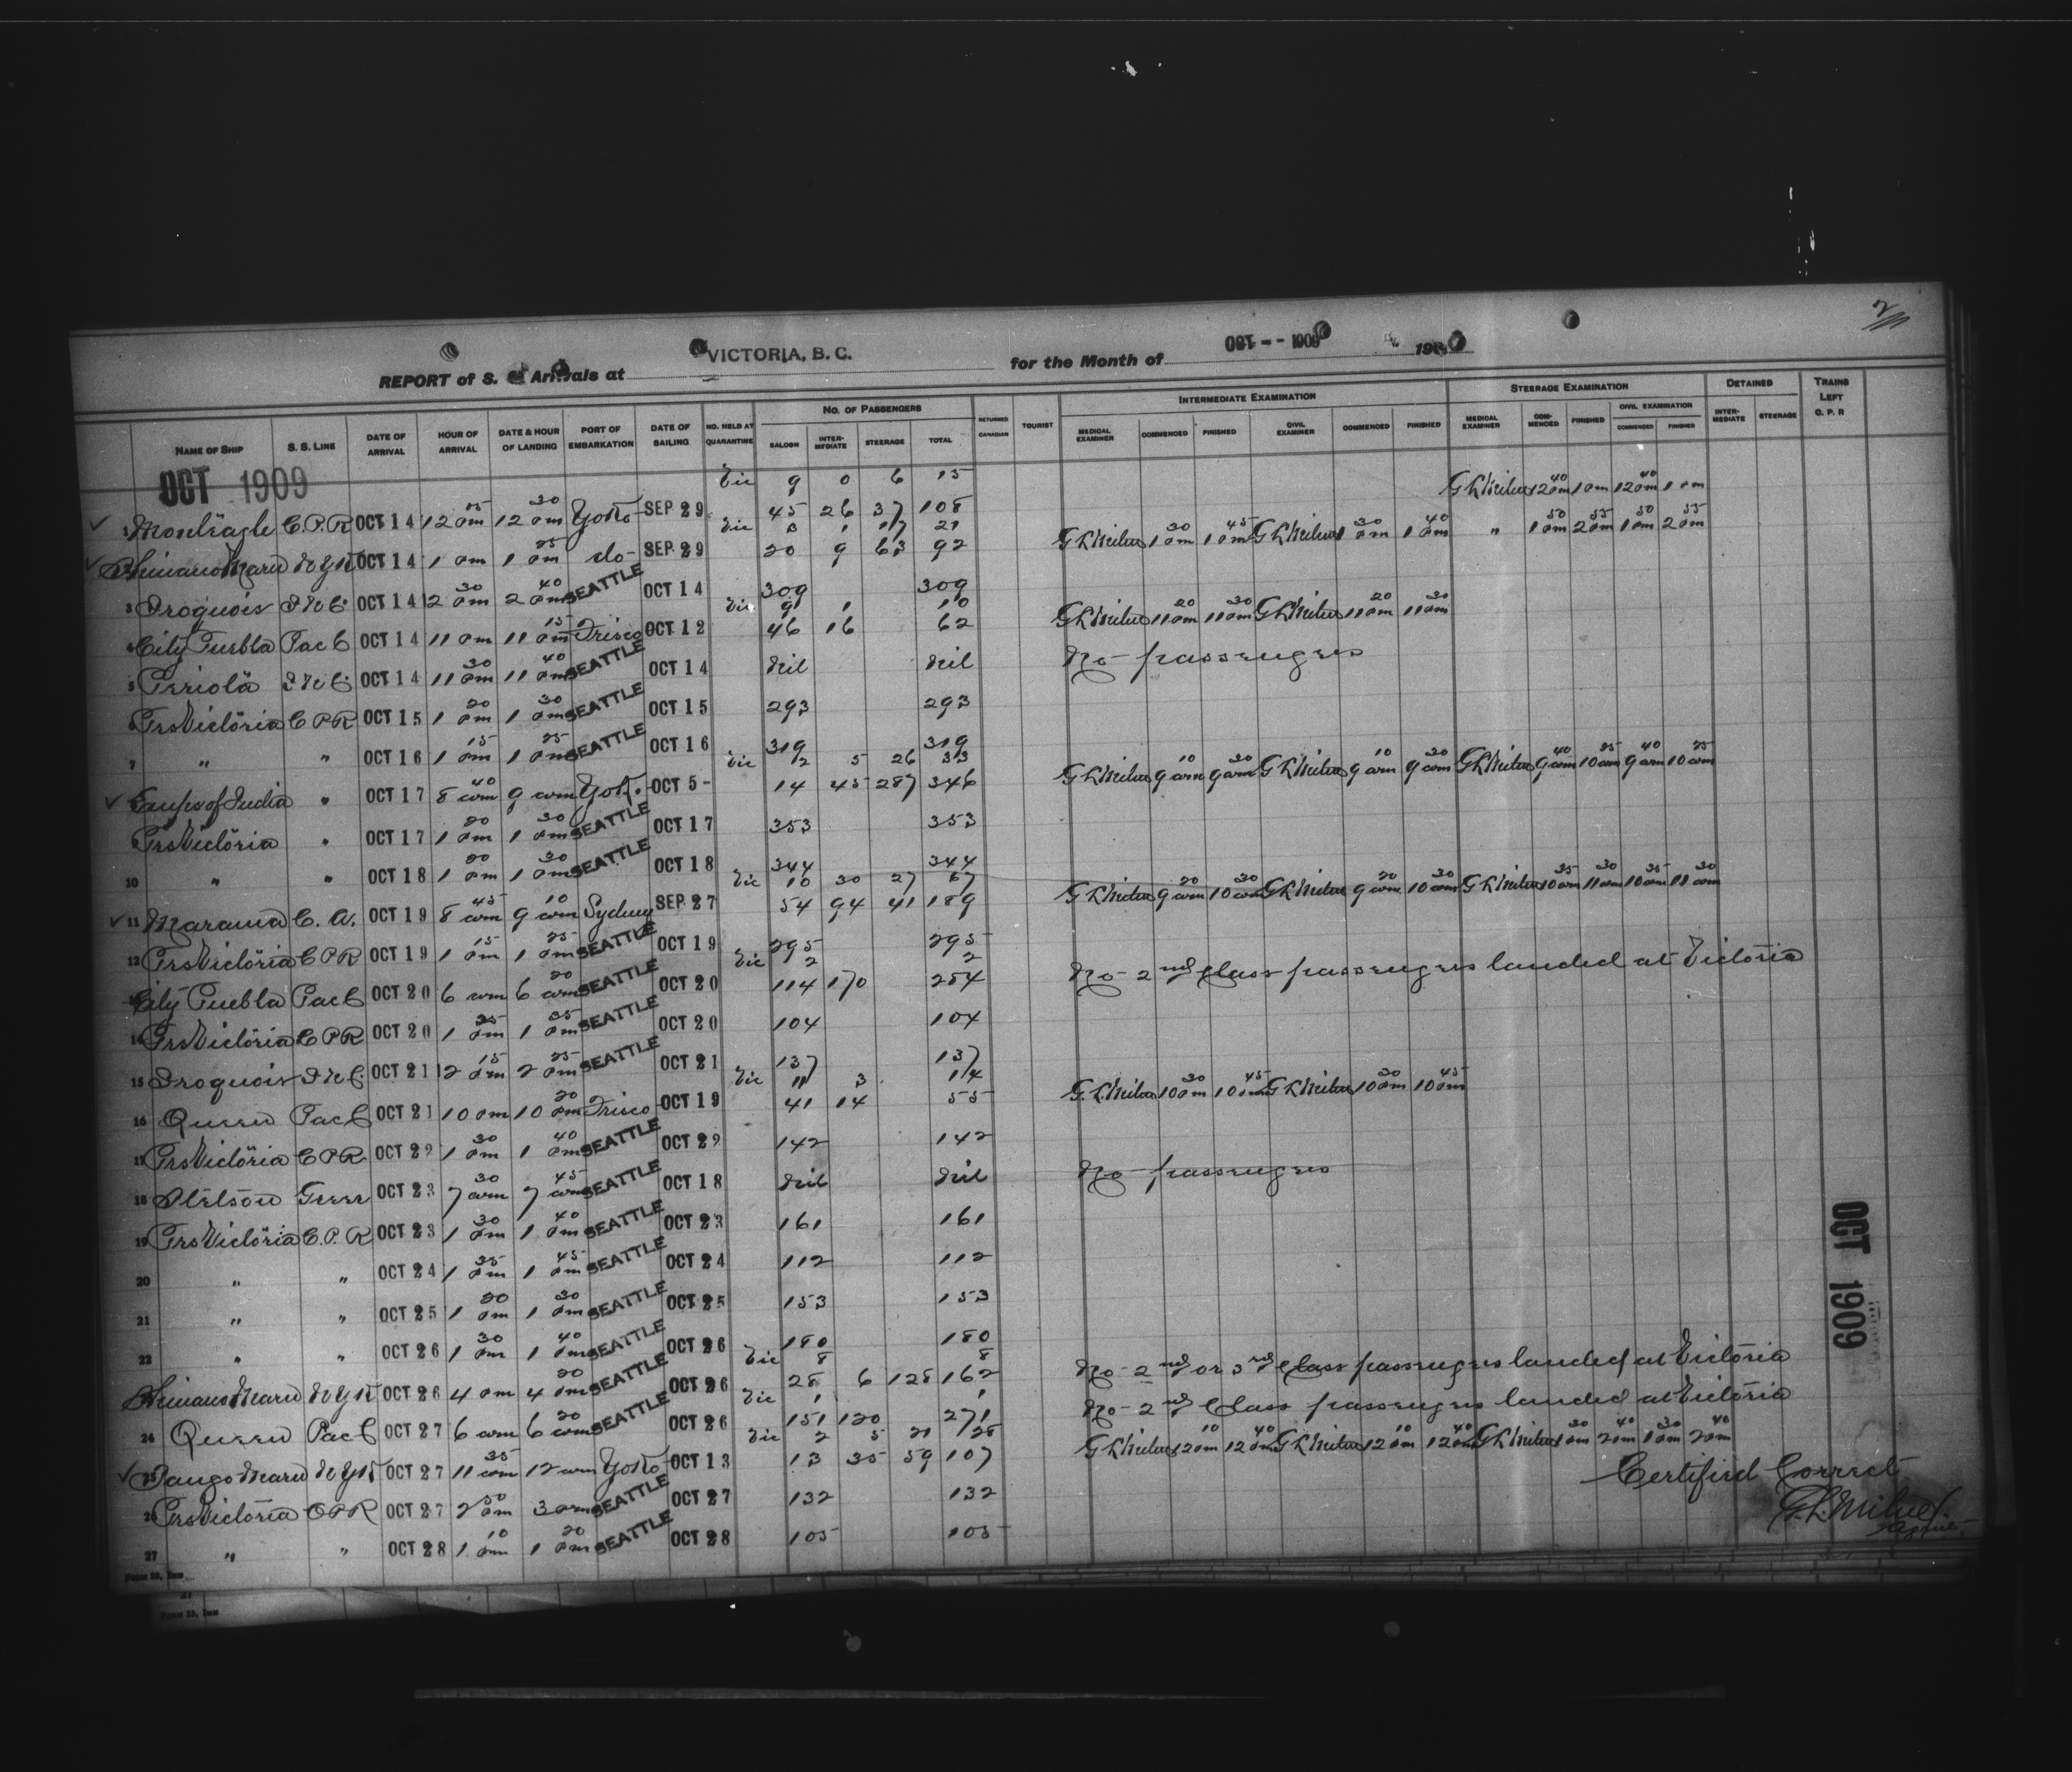 2
REPORT of S. S. Arrivals at VICTORIA, B. C. for the Month of OCT - - 1909 190
NAME OF SHIP S. S. LINE DATE OF ARRIVAL HOUR OF ARRIVAL DATE & HOUR OF LANDING PORT OF EMBARKATION DATE OF SAILING NO. HELD AT QUARANTINE NO. OF PASSENGERS SALOON INTERMEDIATE STEERAGE TOTAL RETURNED CANADIAN TOURIST INTERMEDIATE EXAMINATION MEDICAL EXAMINER COMMENCED FINISHED CIVIL EXAMINER COMMENCED FINISHED STEERAGE EXAMINATION MEDICAL EXAMINER COMMENCED FINISHED CIVIL EXAMINATION COMMENCED FINISHED DETAINED INTERMEDIATE STEERAGE TRAINS LEFT C. P. R
OCT 1909
Vic 9 0 6 15
1 Monteagle C.P.R OCT 14 12 15 pm 12 30 pm Yoko SEP 29 45 26 37 108 G L Milne 12 40 pm 1 pm 12 40 pm 1 pm
Vic 3 1 17 21
Shinano Maru N Y K OCT 14 1 pm 1 25 pm do SEP 29 20 9 63 92 G L Milne 1 30 pm 1 45 pm G L Milne 1 30 pm 1 40 pm " 1 50 pm 2 55 pm 1 50 pm 2 55 pm
3 Iroquois I N C OCT 14 12 30 pm 2 40 pm SEATTLE OCT 14 309 309
Vic 9 1 10
4 City Puebla Pac C OCT 14 11 am 11 15 am Frisco OCT 12 46 16 62 G L Milne 11 20 am 11 30 am G L Milne 11 20 am 11 30 am
5 OCT 14 11 30 am 11 40 am SEATTLE OCT 14 Nil Nil No passengers
6 Prs Victoria C P R OCT 15 1 20 pm 1 30 pm SEATTLE OCT 15 293 293
7 " " OCT 16 1 15 pm 1 25 pm SEATTLE OCT 16 319 319
Vic 2 5 26 33
Emprs of India " OCT 17 8 40 am 9 am Yok. OCT 5 - 14 45 287 346 G L Milne 9 10 am 9 30 am G L Milne 9 10 am 9 30 am G L Milne 9 40 am 10 25 am 9 40 am 10 25 am
Prs Victoria " OCT 17 1 20 pm 1 30 pm SEATTLE OCT 17 353 353
10 " " OCT 18 1 20 pm 1 30 pm SEATTLE OCT 18 344 344
Vic 10 30 27 67
11 Marama C. A. OCT 19 8 45 am 9 10 am Sydney SEP 27 54 94 41 189 G L Milne 9 20 am 10 30 am G L Milne 9 20 am 10 30 am G L Milne 10 35 am 11 30 am 10 35 am 11 30 am
12 Prs Victoria C P R OCT 19 1 15 pm 1 25 pm SEATTLE OCT 19 295 295
Vic 2 2
City Puebla Pac C OCT 20 6 am 6 20 am SEATTLE OCT 20 114 170 284 No 2nd Class passengers landed at Victoria
14 Prs Victoria C P R OCT 20 1 25 pm 1 35 pm SEATTLE OCT 20 104 104
15 Iroquois I N C. OCT 21 12 15 pm 2 25 pm SEATTLE OCT 21 137 137
Vic 11 3 14
16 Queen Pac C OCT 21 10 pm 10 20 pm Frisco OCT 19 41 14 55 G. L. Milne 10 30 pm 10 45 pm G L Milne 10 30 pm 10 45 pm
17 Prs Victoria C P R OCT 22 1 30 pm 1 40 pm SEATTLE OCT 22 142 142
18 Stetson OCT 23 7 30 am 7 45 am SEATTLE OCT 18 Nil Nil No passengers
19 Prs Victoria C. P. R OCT 23 1 30 pm 1 40 pm SEATTLE OCT 23 161 161
20 " " OCT 24 1 35 pm 1 45 pm SEATTLE OCT 24 112 112
21 " " OCT 25 1 20 pm 1 30 pm SEATTLE OCT 25 153 153
22 " " OCT 26 1 30 pm 1 40 pm SEATTLE OCT 26 180 180
Vic 8 8
Shinano Maru N Y K OCT 26 4 pm 4 20 pm SEATTLE OCT 26 28 6 128 162 No 2nd or 3rd Class passengers landed at Victoria
Vic 1 1
24 Queen Pac C OCT 27 6 am 6 20 am SEATTLE OCT 26 151 120 271 No 2nd Class passengers landed at Victoria
Vic 2 5 21 28
25 Tango Maru N Y K OCT 27 11 35 am 12 am Yoko OCT 13 13 35 59 107 G L Milne 12 10 pm 12 40 pm G L Milne 12 10 pm 12 40 pm G L Milne 1 30 pm 2 40 pm 1 30 pm 2 40 pm
26 Prs Victoria C P R OCT 27 2 50 pm 3 pm SEATTLE OCT 27 132 132
27 " " OCT 28 1 10 pm 1 20 pm SEATTLE OCT 28 105 105
Certified Correct
G. L. Milne
Agent.
OCT 1909
Form 23, Imm
Form 23, Imm